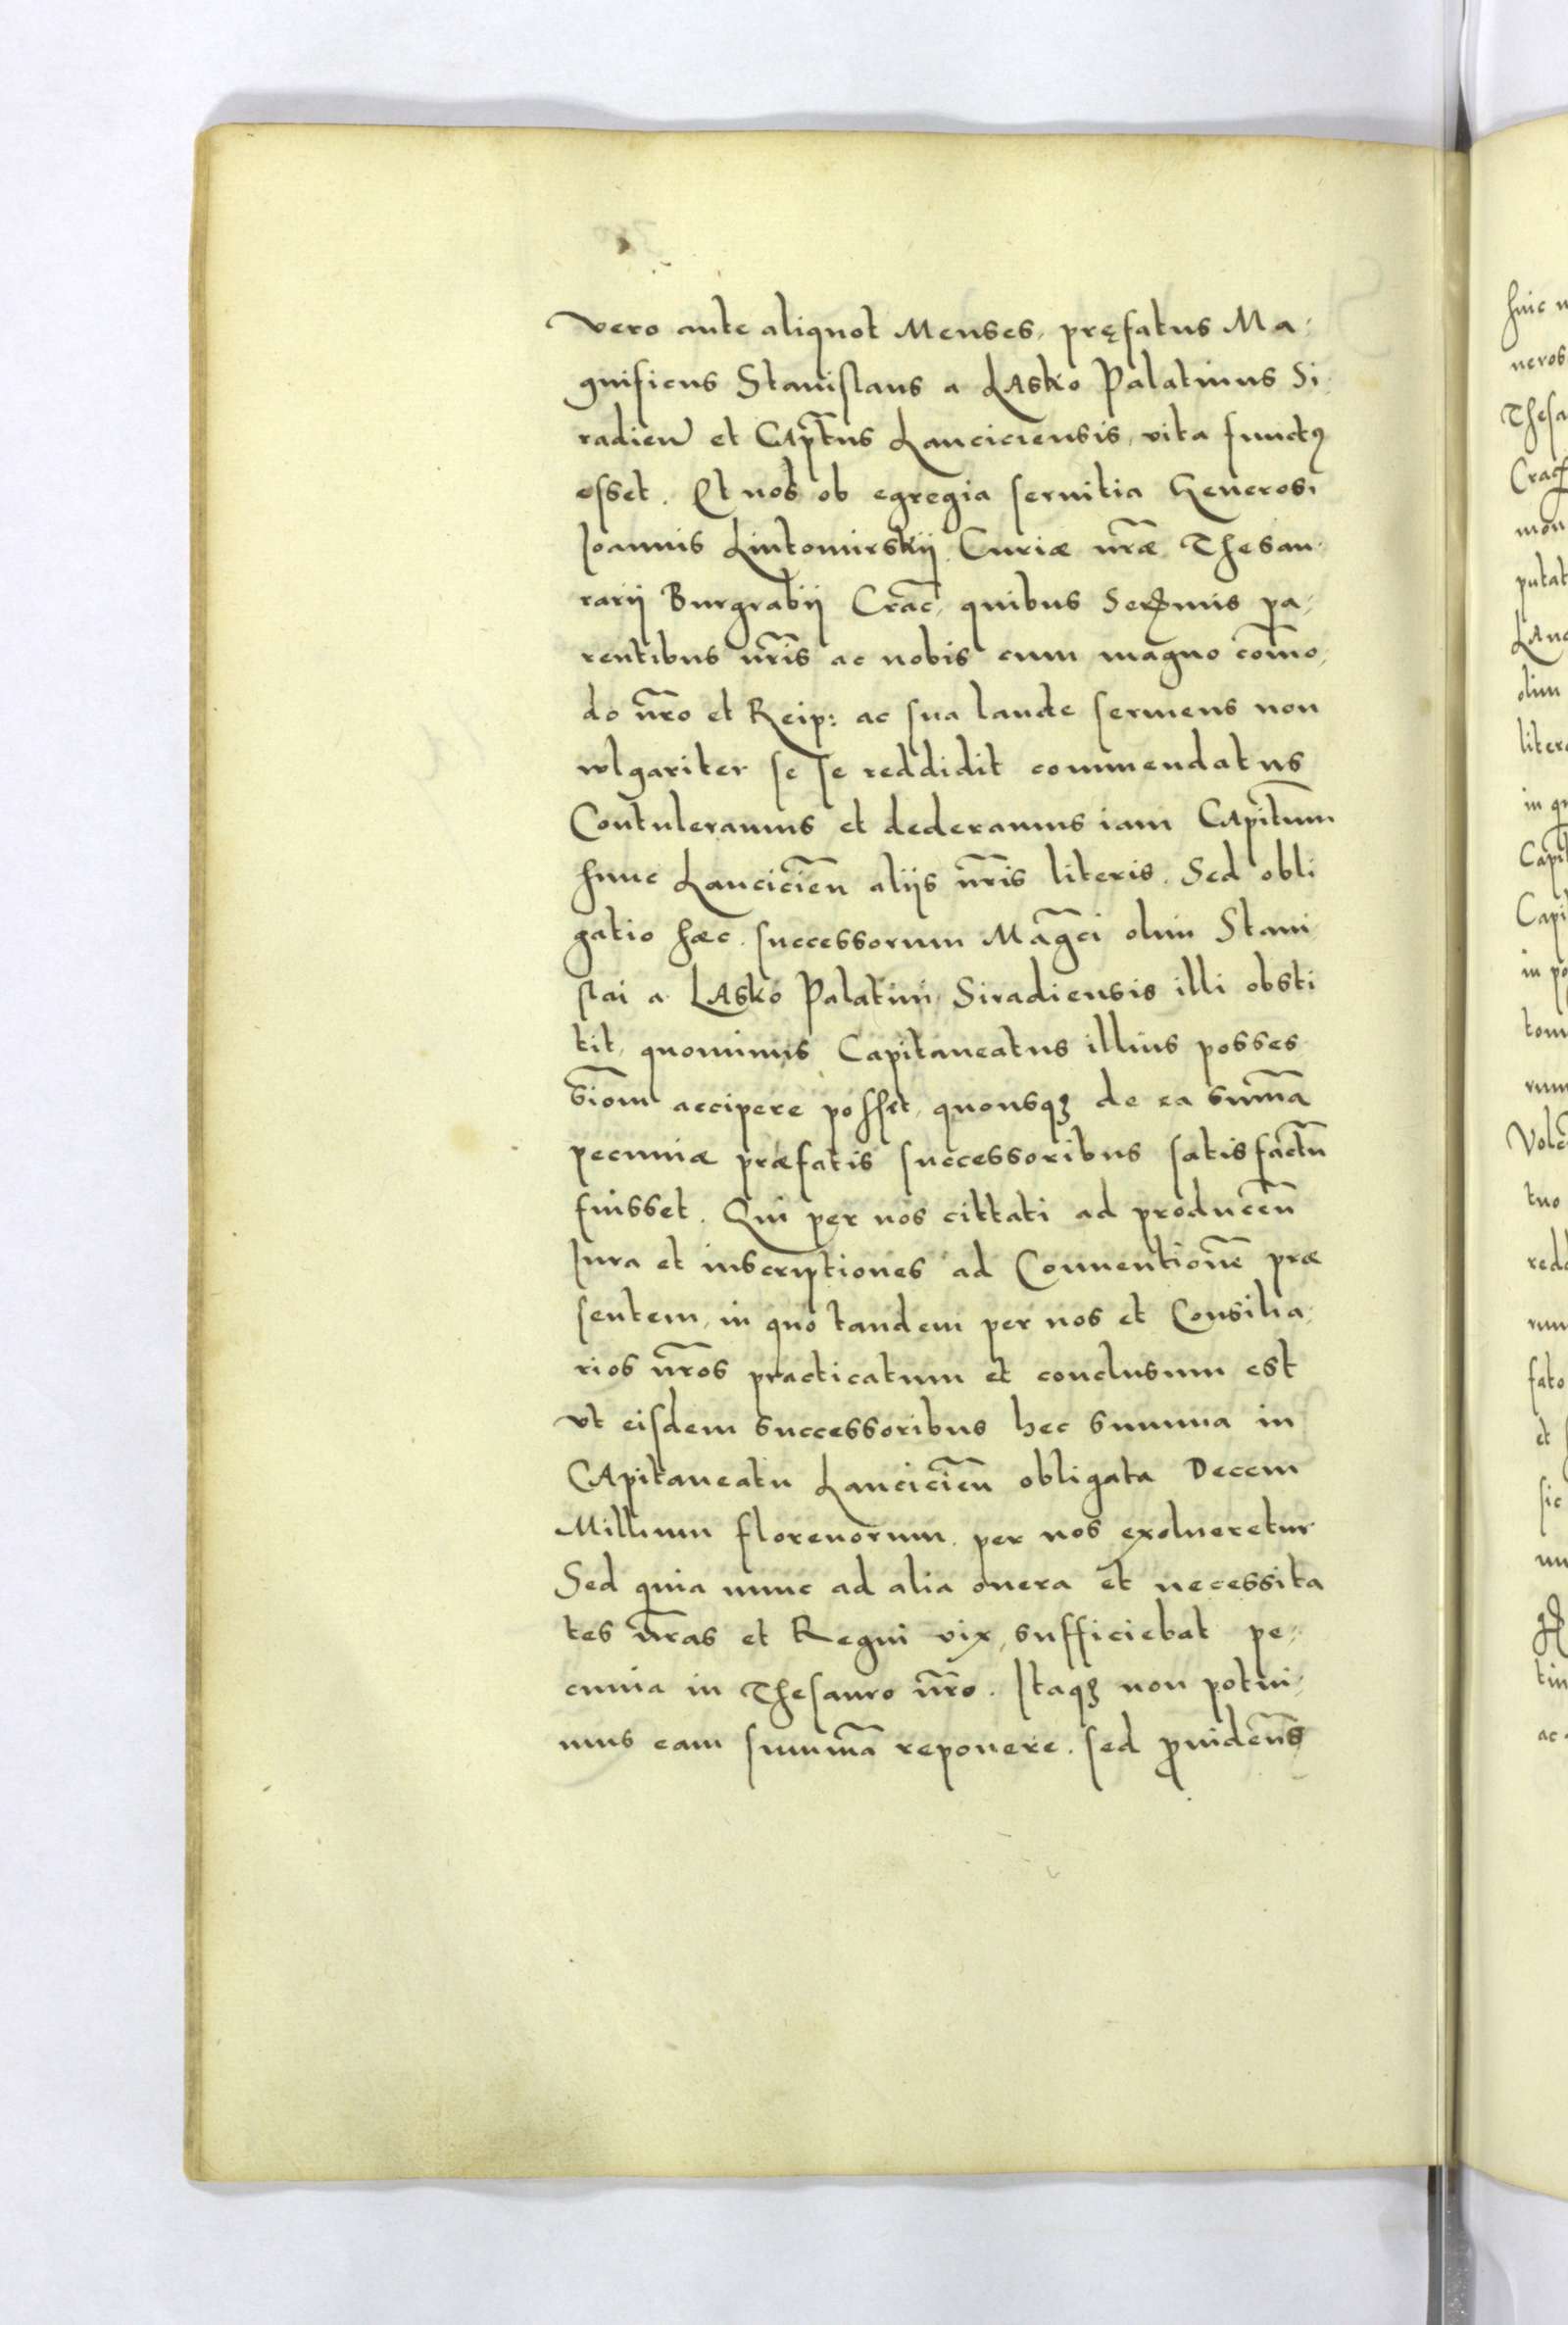 vero ante aliquot Menses, pręfatus Ma,
gnificus Stanislaus a LAsko Palatinus Si,
radien̄ et CAptn̄us Lanciciensis, vita functꝰ
esset. Et nos ob egregia seruitia Generosi
Joannis Liutomirskij Curiæ nr̄æ Thesau,
rarij Burgrabij Crac̄, quibus Ser̄mis pa,
rentibus nr̄is ac nobis cum magno com̄o,
do nr̄o et Reip: ac sua laude seruiens non
wlgariter se se reddidit commendatus
Contuleramus et dederamus iam CApitn̄um
hunc Lancicien̄ aliis nr̄is literis. Sed obli
gatio hæc. successorum Magc̄i olim Stani
slai a LAsko Palatini Siradiensis illi obsti
tit, quominus Capitaneatus illius posses
siom̄ accipere posset, quousqꝫ de ea sum̄a
pecuniæ præfatis successoribus satisfactū
fuisset. Qui per nos cittati ad producen̄
Jura et inscriptiones ad Conuentionē præ
sentem, in quo tandem per nos et Consilia,
rios nr̄os practicatum et conclusum est
vt eisdem successoribus hec summa in
CApitaneatu Lancicien̄ obligata Decem
Millium florenorum per nos exolueretur
Sed quia nunc ad alia onera et necessita
tes nr̄as et Regni vix sufficiebat pe,
cunia in Thesauro nr̄o. Itaqꝫ non potui,
mus eam summā reponere. sed ꝓuidens̄